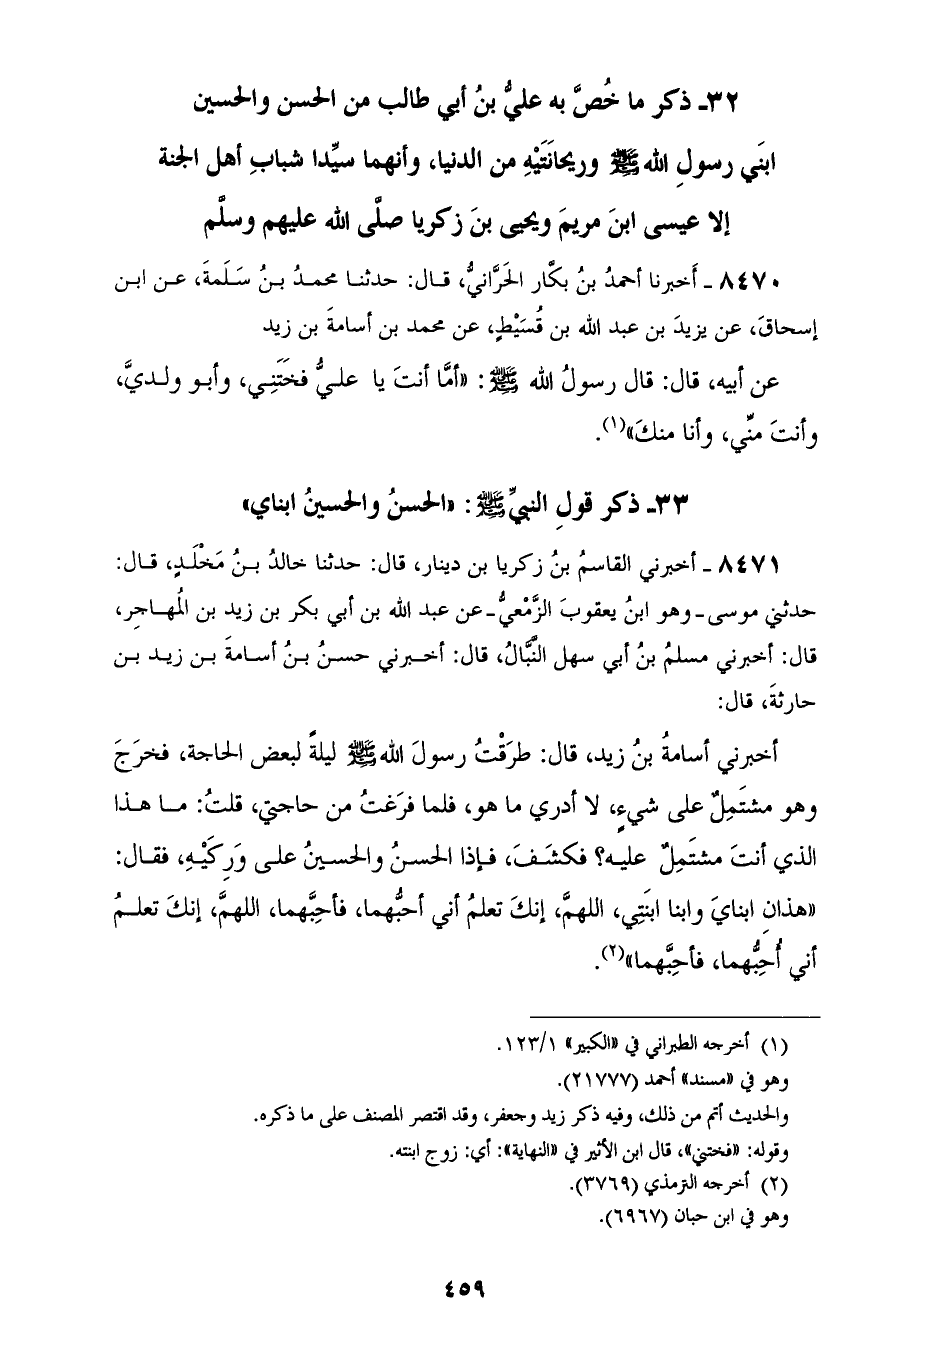 ٣٢ـ ذكر ما خُصَّ به عليُّ بنُ أبي طالب من الحسن والحسين
ابنَي رسولِ الله ﷺ وريحانَتَيْهِ من الدنيا، وأنهما سيِّدا شبابِ أهل الجنة
إلا عيسى ابنَ مريمَ ويحيى بنَ زكريا صلَّى الله عليهم وسلَّم
٨٤٧٠ ـ أَخبرنا أحمدُ بنُ بكَّار الحَرَّانيُّ، قـال: حدثنـا محمـدُ بـنُ سَـلَمةَ، عـن ابـن
إسحاقَ، عن يزيدَ بن عبد الله بن قُسَيْطٍ، عن محمد بن أسامةَ بن زيد
عن أبيه، قال: قال رسولُ الله ﷺ: «أمَّا أنتَ يا عليُّ فخَتَنِـي، وأبـو ولـديَّ،
وأنتَ منِّي، وأنا منكَ»(١).
٣٣ـ ذكر قولِ النبيِّ ﷺ: «الحسنُ والحسينُ ابناي»
٨٤٧١ ـ أخبرني القاسمُ بنُ زكريا بن دينار، قال: حدثنا خالدُ بـنُ مَخْلَـدٍ، قـال:
حدثني موسى ـ وهو ابنُ يعقوبَ الزَّمْعيُّ ـ عن عبد الله بن أبي بكر بن زيد بن المُهـاجر،
قال: أخبرني مسلمُ بنُ أبي سهل النَّبَّالُ، قال: أخـبرني حسنُ بـنُ أسـامةَ بـن زيـد بـن
حارثةَ، قال:
أخبرني أسامةُ بنُ زيد، قال: طرَقْتُ رسولَ الله ﷺ ليلةً لبعض الحاجة، فخرَجَ
وهو مشتَمِلٌ على شيءٍ، لا أدري ما هو، فلما فرَغتُ من حاجتي، قلتُ: مـا هـذا
الذي أنتَ مشتَمِلٌ عليـه؟ فكشَـفَ، فـإذا الحسـنُ والحسـينُ علـى وَرِكَيْـهِ، فقـال:
«هذانِ ابنايَ وابنا ابنَتِي، اللهمَّ، إنكَ تعلمُ أني أحبُّهما، فأحِبَّهما، اللهمَّ، إنكَ تعلـمُ
أني أُحِبُّهما، فأحِبَّهما»(٢).
(١) أخرجه الطبراني في «الكبير» ١٢٣/١.
وهو في «مسند» أحمد (٢١٧٧٧).
والحديث أتم من ذلك، وفيه ذكر زيد وجعفر، وقد اقتصر المصنف على ما ذكره.
وقوله: «فختني»، قال ابن الأثير في «النهاية»: أي: زوج ابنته.
(٢) أخرجه الترمذي (٣٧٦٩).
وهو في ابن حبان (٦٩٦٧).
٤٥٩